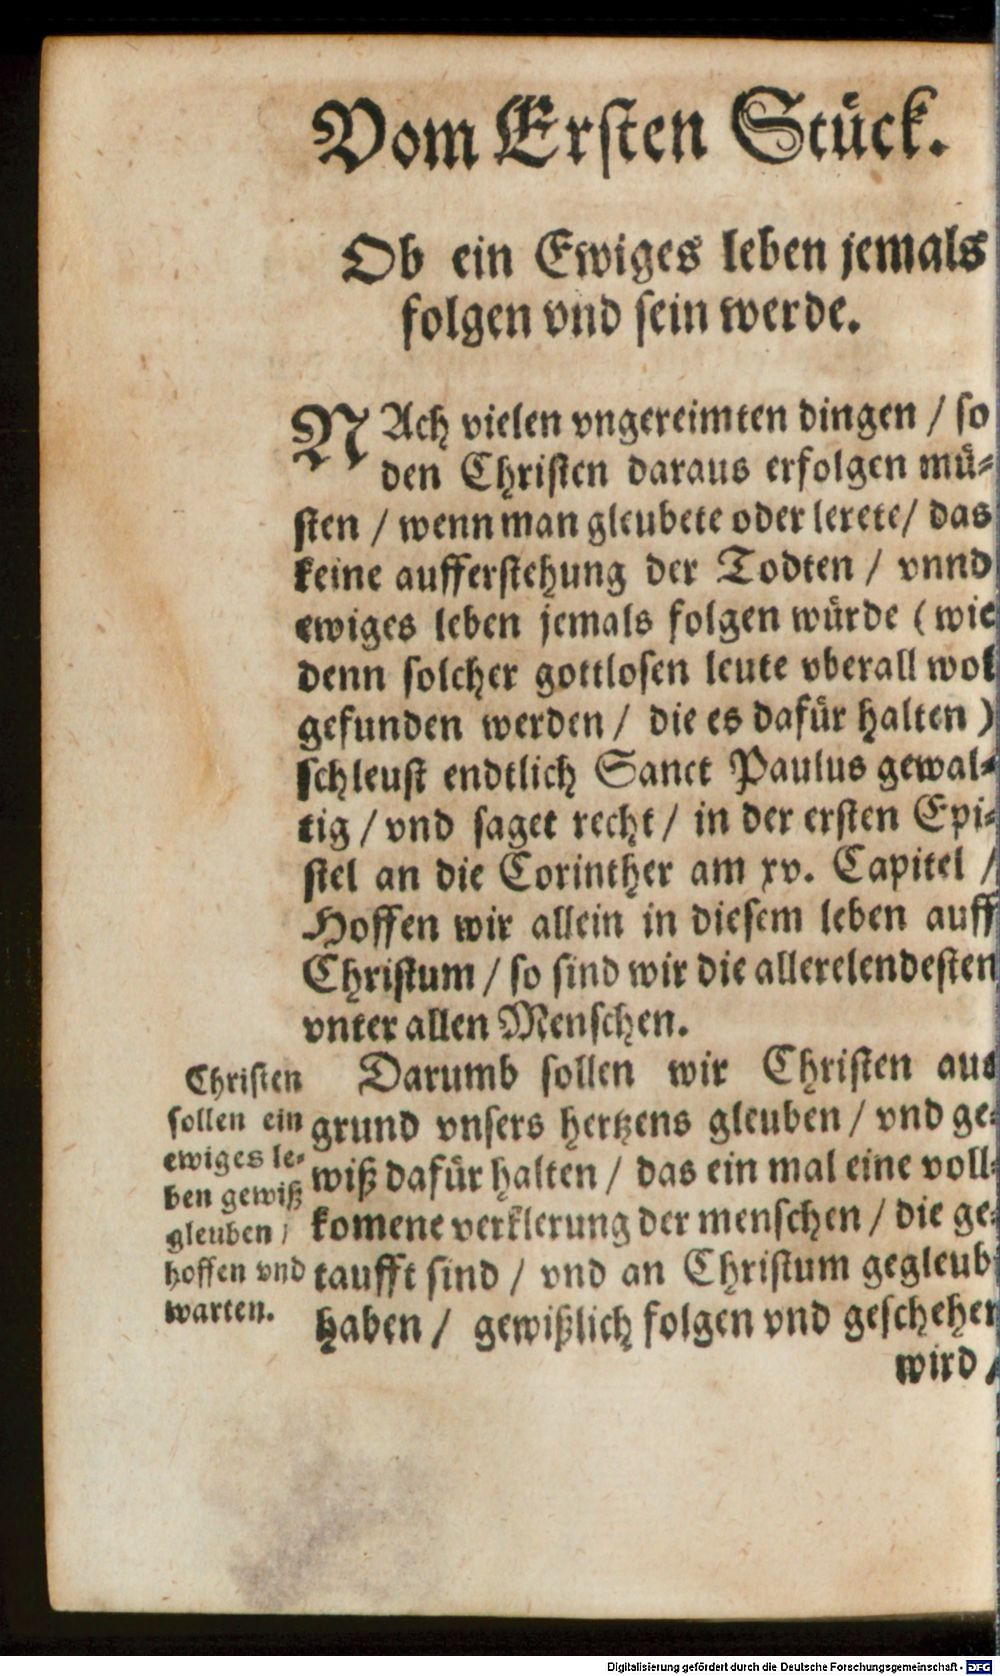 Vom Ersten Stück.
Ob ein Ewiges leben jemals
folgen vnd sein werde.
NAch vielen vngereimten dingen / so
den Christen daraus erfolgen mü-
sten / wenn man gleubete oder lerete / das
keine aufferstehung der Todten / vnnd
ewiges leben jemals folgen würde (wie
denn solcher gottlosen leute vberall wol
gefunden werden / die es dafür halten)
schleust endtlich Sanct Paulus gewal-
tig / vnd saget recht / in der ersten Epi-
stel an die Corinther am xv. Capitel /
Hoffen wir allein in diesem leben auff
Christum / so sind wir die allerelendesten
vnter allen Menschen.
Darumb sollen wir Christen aus
grund vnsers hertzens gleuben / vnd ge-
wiß dafür halten / das ein mal eine voll-
komene verklerung der menschen / die ge-
taufft sind / vnd an Christum gegleub
haben / gewißlich folgen vnd geschehen
wird /
Christen
sollen ein
ewiges le-
ben gewiß
gleuben /
hoffen vnd
warten.
Digitalisierung gefördert durch die Deutsche Forschungsgemeinschaft - DFG